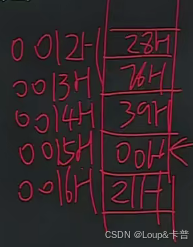 0012H 28H
0013H 76H
0014H 39H
0015H 00H
0016H 21H
CSDN @Loup&卡普